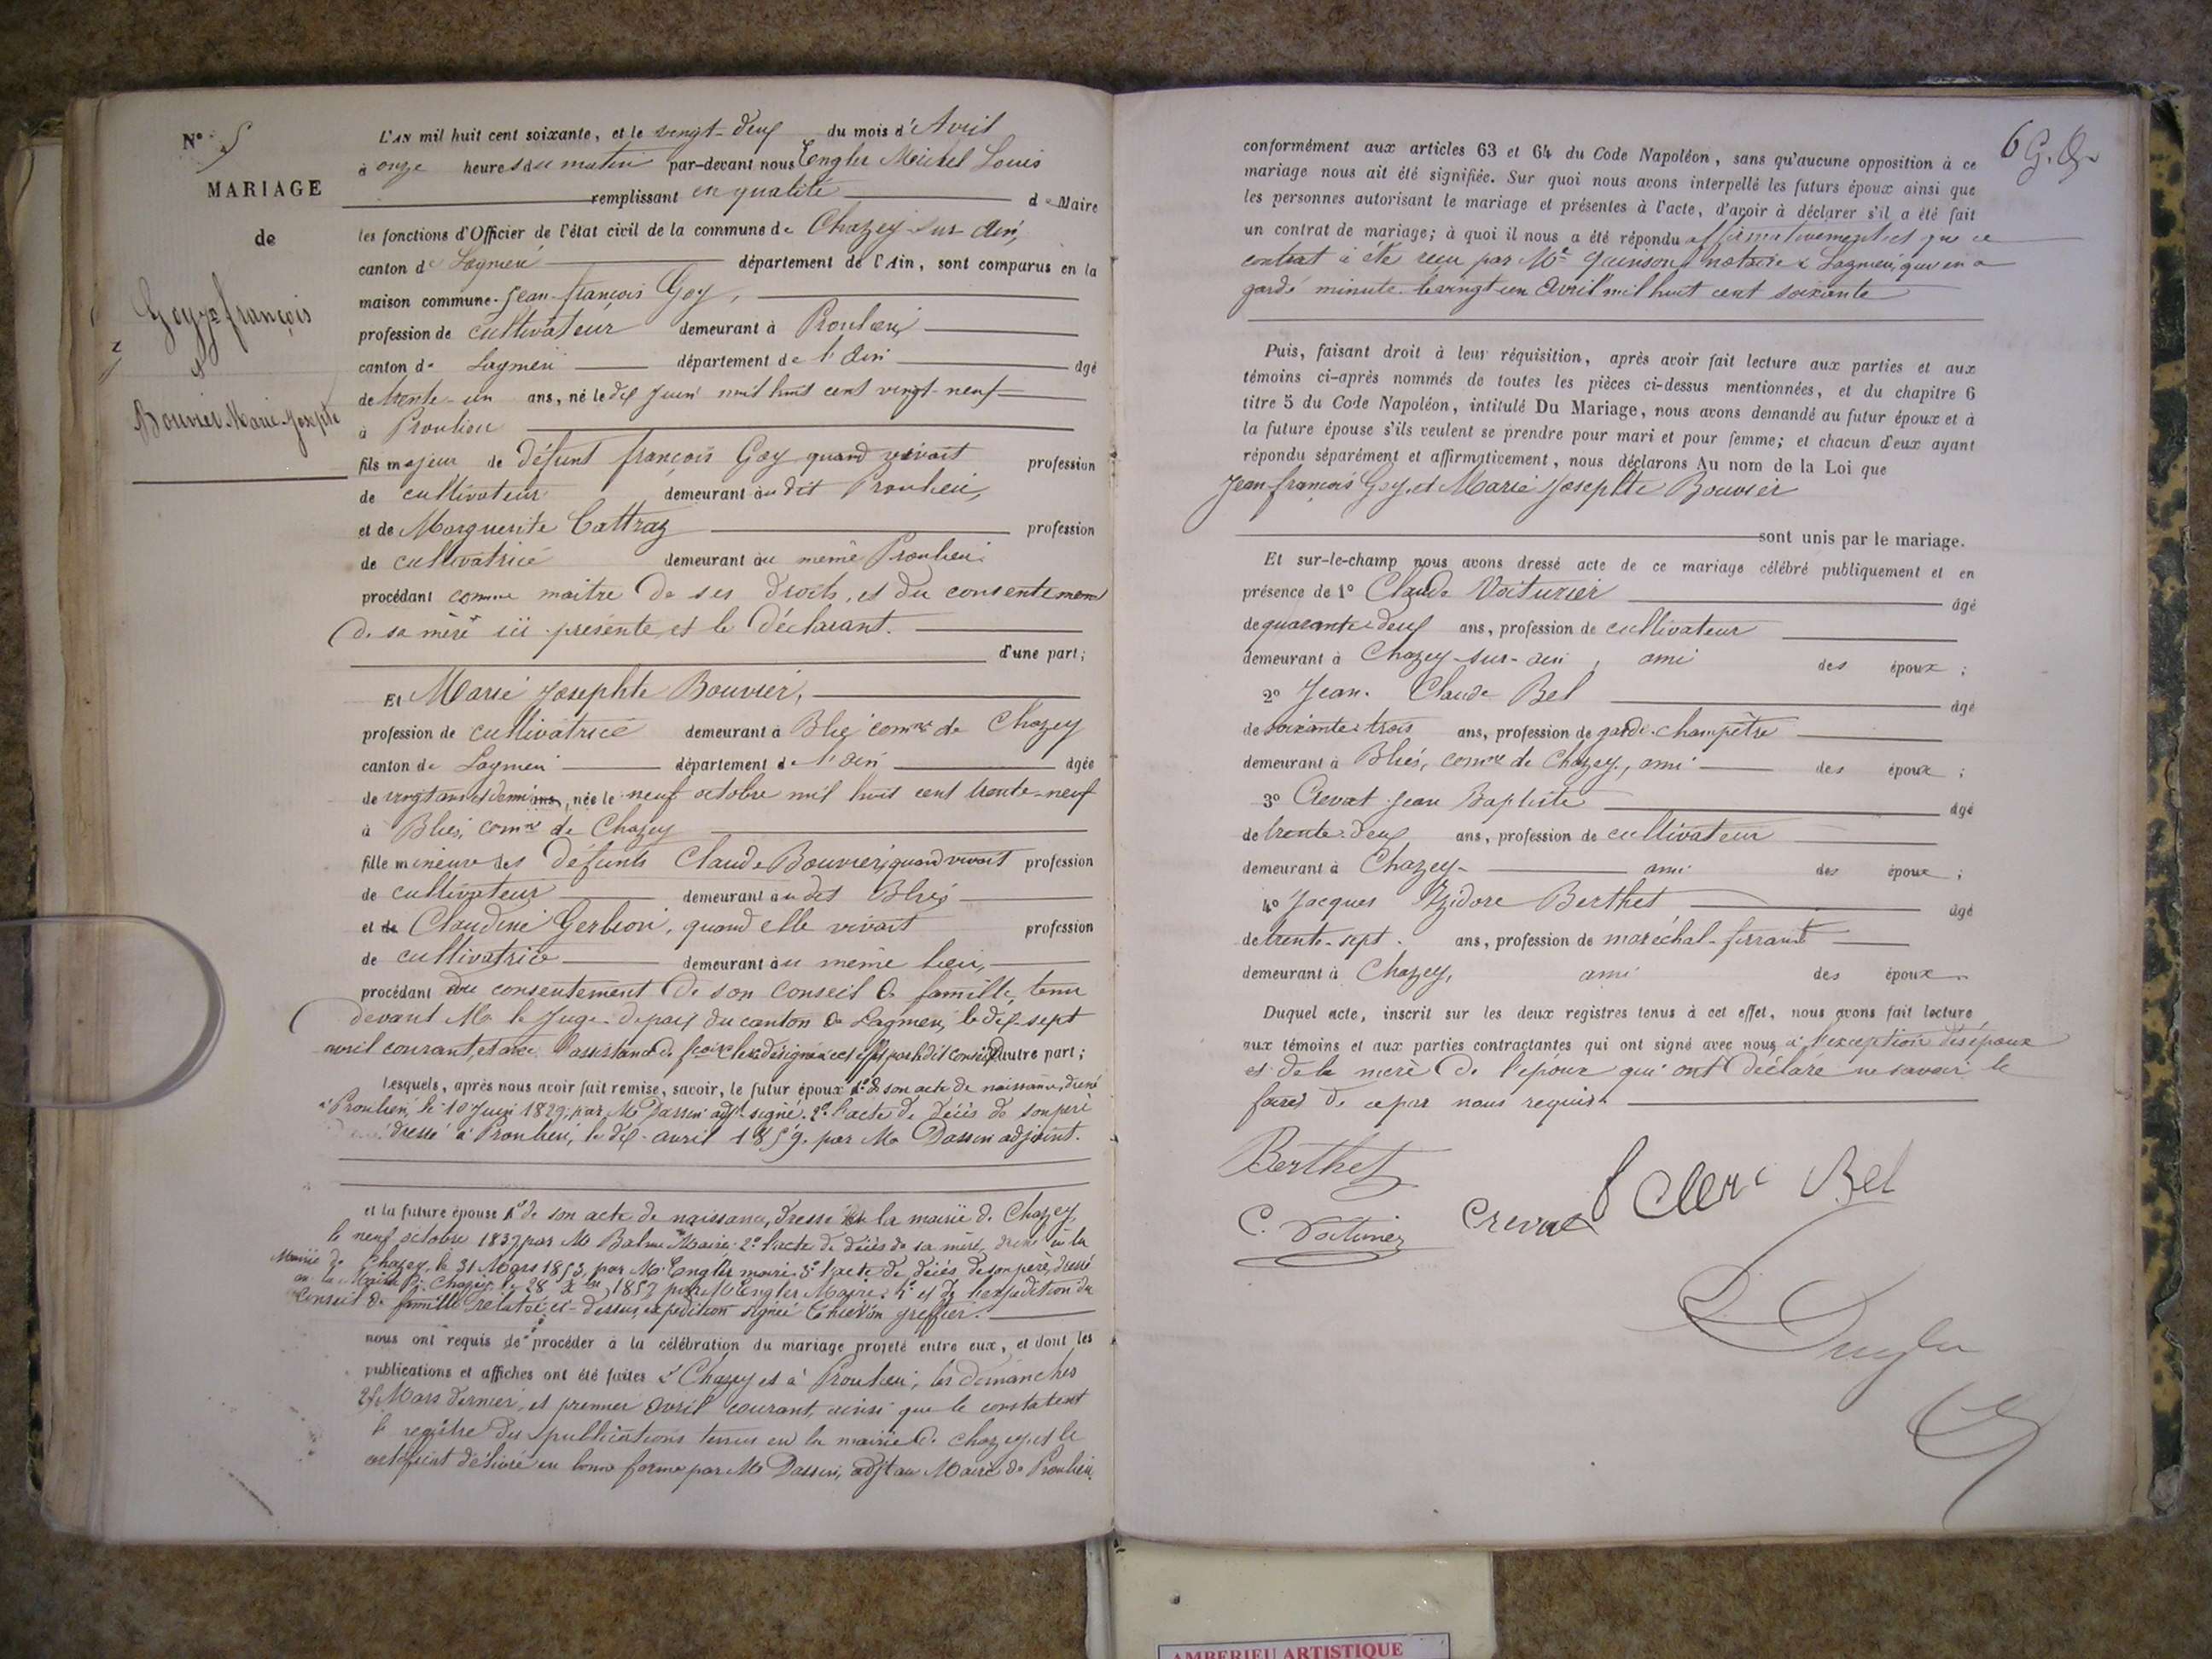 N° 5
MARIAGE
de
Goy Jn françois
et
Bouvier Marie Josephte
L'AN mil huit cent soixante, et le vingt-deux du mois d'Avril
à onze heures du matin par-devant nous Engler Michel Louis
remplissant en qualité de Maire
les fonctions d'Officier de l'état civil de la commune de Chazey-sur-Ain,
canton de Lagnieu département de l'Ain, sont comparus en la
maison commune. Jean-françois Goy,
profession de cultivateur demeurant à Proulieu
canton de Lagnieu département de l'Ain âgé
de trente-un ans, né le dix juin mil huit cent vingt-neuf
à Proulieu
fils majeur de défunt françois Goy quand vivait profession
de cultivateur demeurant au dit Proulieu,
et de Marguerite Cattraz profession
de cultivatrice demeurant au même Proulieu.
procédant comme maitre de ses droits, et du consentement
de sa mère ici présente et le déclarant.
d'une part;
Et Marie Josephte Bouvier,
profession de cultivatrice demeurant à Blie comne de Chazey
canton de Lagnieu département de l'Ain âgée
de vingt ans et demi ans, née le neuf octobre mil huit cent trente-neuf
à Blies, comne de Chazey
fille mineure des défunts Claude Bouvier, quand vivait profession
de cultivateur demeurant au dit Bliés
et de Claudine Gerbion, quand elle vivait profession
de cultivatrice demeurant au même lieu,
procédant du consentement de son Conseil de famille, tenu
devant Mr le Juge-de-paix du canton de Lagnieu, le dix-sept
avril courant, et avec l'assistance de fçois Clerc désigné à cet effet par le dit Conseil d'autre part;
Lesquels, après nous avoir fait remise, savoir, le futur époux 1° de son acte de naissance, dressé
à Proulieu, le 10 Juin 1829, par Mr Dassin adjt signé. 2° l'acte de décès de son père
dressé à Proulieu, le dix-avril 1859. par Mr Dassin adjoint.
et la future épouse 1° de son acte de naissance, dressé en la mairie de Chazey,
le neuf octobre 1839 par Mr Balme Maire. 2° l'acte de décès de sa mère, dressé à la
Mairie de Chazey, le 31 Mars 1853, par Mr Engler maire. 3° l'acte de décès de son père, dressé
en la Mairie de Chazey, le 28 1857 par Mr Engler Maire. 4° et de l'expédition du
Conseil de famille relatée ci-dessus, expédition signée greffier.
nous ont requis de procéder à la célébration du mariage projeté entre eux, et dont les
publications et affiches ont été faites à Chazey et à Proulieu, les dimanches
25 Mars dernier, et premier Avril courant, ainsi que le constatent
le registre des publications tenus en la mairie de Chazey, et le
certificat délivré en bonne forme par Mr Dassin, adjt au Maire de Proulieu.
6 G. Q.
conformément aux articles 63 et 64 du Code Napoléon, sans qu'aucune opposition à ce
mariage nous ait été signifiée. Sur quoi nous avons interpellé les futurs époux ainsi que
les personnes autorisant le mariage et présentes à l'acte, d'avoir à déclarer s'il a été fait
un contrat de mariage; à quoi il nous a été répondu affirmativement et que ce
contrat a été reçu par Me Quinson, notaire à Lagnieu, qui en a
gardé minute le vingt-un Avril mil huit cent soixante
Puis, faisant droit à leur réquisition, après avoir fait lecture aux parties et aux
témoins ci-après nommés de toutes les pièces ci-dessus mentionnées, et du chapitre 6
titre 5 du Code Napoléon, intitulé Du Mariage, nous avons demandé au futur époux et à
la future épouse s'ils veulent se prendre pour mari et pour femme; et chacun d'eux ayant
répondu séparément et affirmativement, nous déclarons Au nom de la Loi que
Jean-françois Goy, et Marie Josephte Bouvier
sont unis par le mariage.
Et sur-le-champ nous avons dressé acte de ce mariage célébré publiquement et en
présence de 1° Claude Voiturier âgé
de quarante-deux ans, profession de cultivateur
demeurant à Chazey-sur-ain, ami des époux;
2° Jean-Claude Bel âgé
de soixante-trois ans, profession de garde-champêtre
demeurant à Bliés, comne de Chazey, ami des époux;
3° Crevat Jean Baptiste âgé
de trente-deux ans, profession de cultivateur
demeurant à Chazey- ami des époux;
4° Jacques Izidore Berthet âgé
de trente-sept ans, profession de maréchal-ferrant
demeurant à Chazey, ami des époux
Duquel acte, inscrit sur les deux registres tenus à cet effet, nous avons fait lecture
aux témoins et aux parties contractantes qui ont signé avec nous à l'exception des époux
et de la mère de l'époux qui ont déclaré ne savoir le
faire, de ce par nous requis.
Berthet
C. Voiturier
Crevat
f Clerc
Bel
L Engler
AMBERIEU ARTISTIQUE